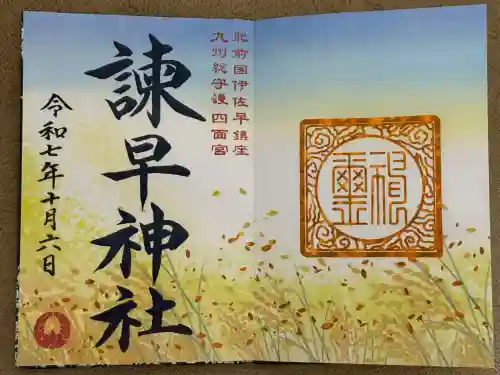 肥前国伊佐早鎮座
九州総守護四面宮
諫早神社
令和七年十月六日